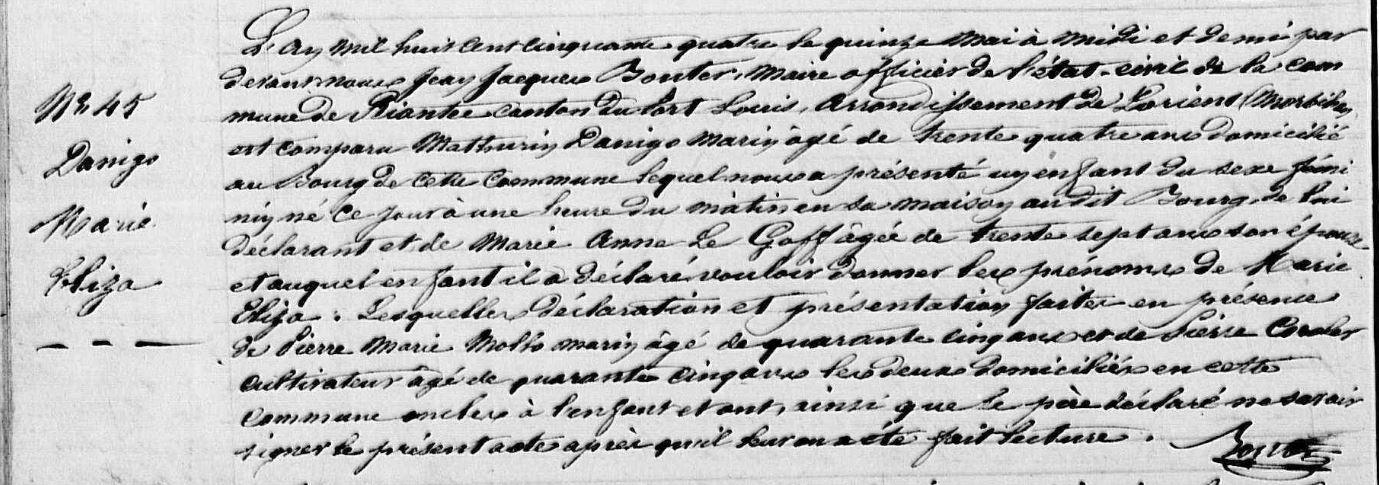 N° 45
Danigo
Marie
Eliza
L'an mil huit cent cinquante quatre le quinze mai à midi et demi par
devant nous Jean Jacques Bouter, Maire officier de l'état-civil de la com
mune de Riantec canton du Port Louis, Arrondissement de Lorient (Morbihan)
est comparu Mathurin Danigo Marin âgé de trente quatre ans domicilié
au Bourg de cette commune lequel nous a présenté un enfant du sexe fémi
nin né ce jour à une heure du matin en sa maison audit Bourg de lui
déclarant et de Marie Anne Le Goff âgée de trente sept ans son épouse
et auquel enfant il a déclaré vouloir donner les prénoms de Marie
Eliza. Lesquelles déclaration et présentation faites en présence
de Pierre Marie Mollo marin âgé de quarante cinq ans et de Pierre
cultivateur âgé de quarante cinq ans les deux domiciliés en cette
commune oncles à l'enfant et ont, ainsi que le père déclaré ne savoir
signer le présent acte après qu'il leur en a été fait lecture.